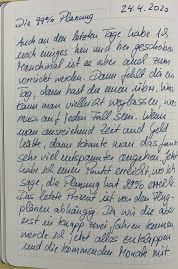 24.4.2020
Die 99% Planung
Auch an den letzten Tage habe ich
noch einiges hin und her geschoben
Manchmal ist es aber auch zum
verrückt werden. Dann fehlt da ein
Tag, dann hast du einen über. Was
kann man vielleicht weglassen, was
muss auf jeden Fall sein. Wenn
man ausreichend Zeit und Geld
hätte, dann könnte man das ganze
sehr viel entspannter angehen. Jetzt
habe ich einen Punkt erreicht, wo ich
sage, die Planung hat 99% erreicht.
Das letzte Prozent ist von den Flug-
plänen abhängig. Da wir die aber
erst in knapp zwei Jahren kommen
werde ich jetzt alles einklappen
und die kommenden Monate mit